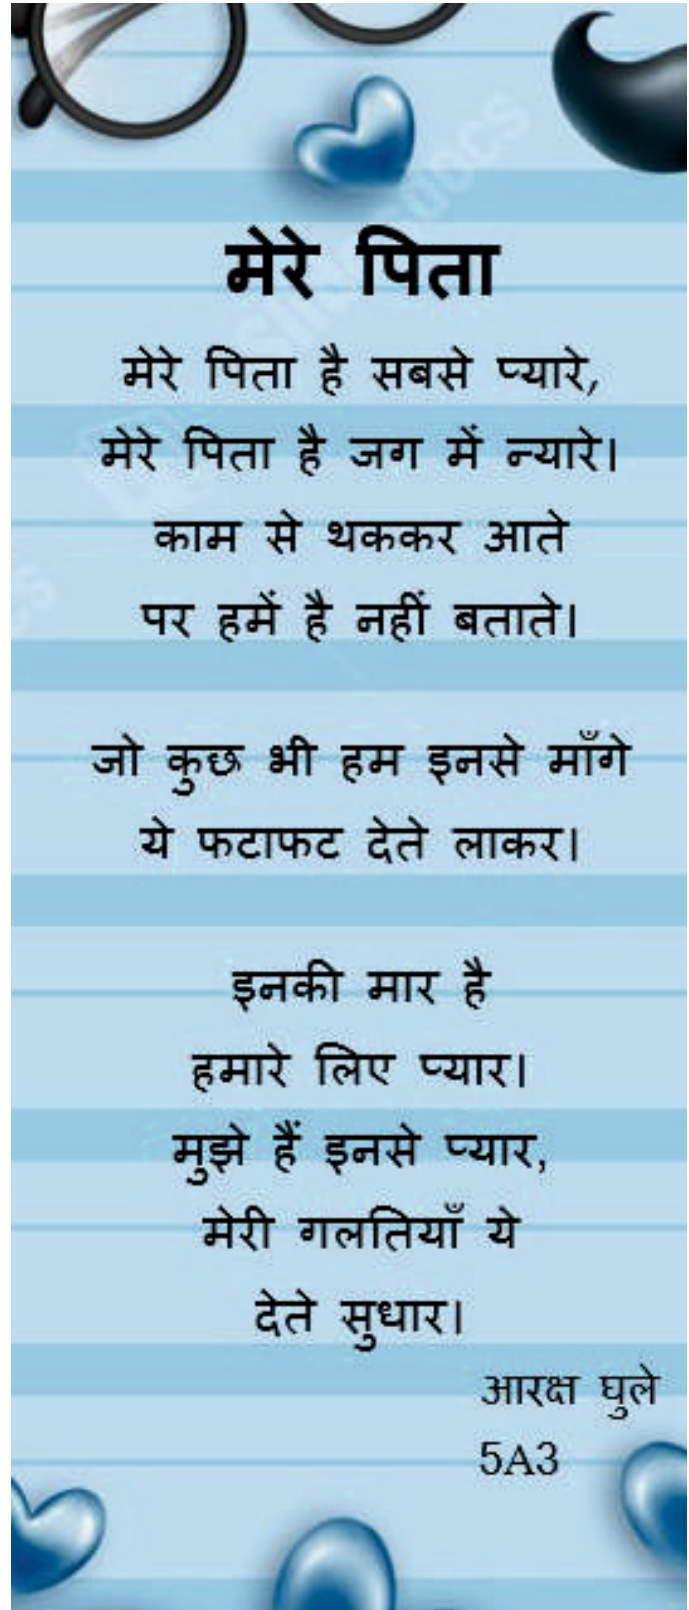 मेरे पिता
मेरे पिता है सबसे प्यारे,
मेरे पिता है जग में न्यारे।
काम से थककर आते
पर हमें है नहीं बताते।
जो कुछ भी हम इनसे माँगे
ये फटाफट देते लाकर।
इनकी मार है
हमारे लिए प्यार।
मुझे हैं इनसे प्यार,
मेरी गलतियाँ ये
देते सुधार।
आरक्ष घुले
5A3